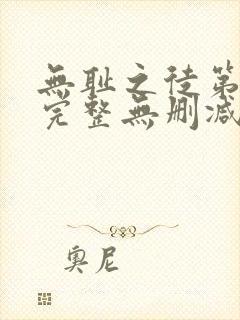 無耻之徒第
完整無刪减
奥尼